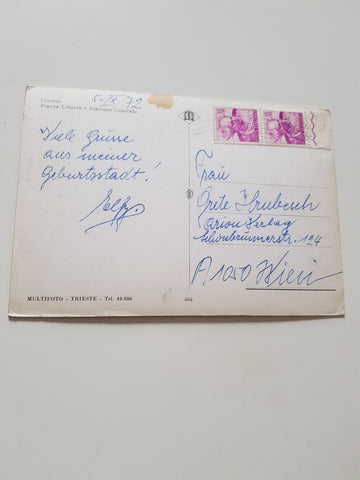 Trieste
Piazza Libertà e Stazione Centrale
5. IX 72
Viele Grüsse
aus meiner
Geburtsstadt!
Frau
Grete Hrubesch
Arion Verlag
Schönbrunnerstr. 124
A 1050 Wien
MULTIFOTO - TRIESTE - Tel. 44.686
464